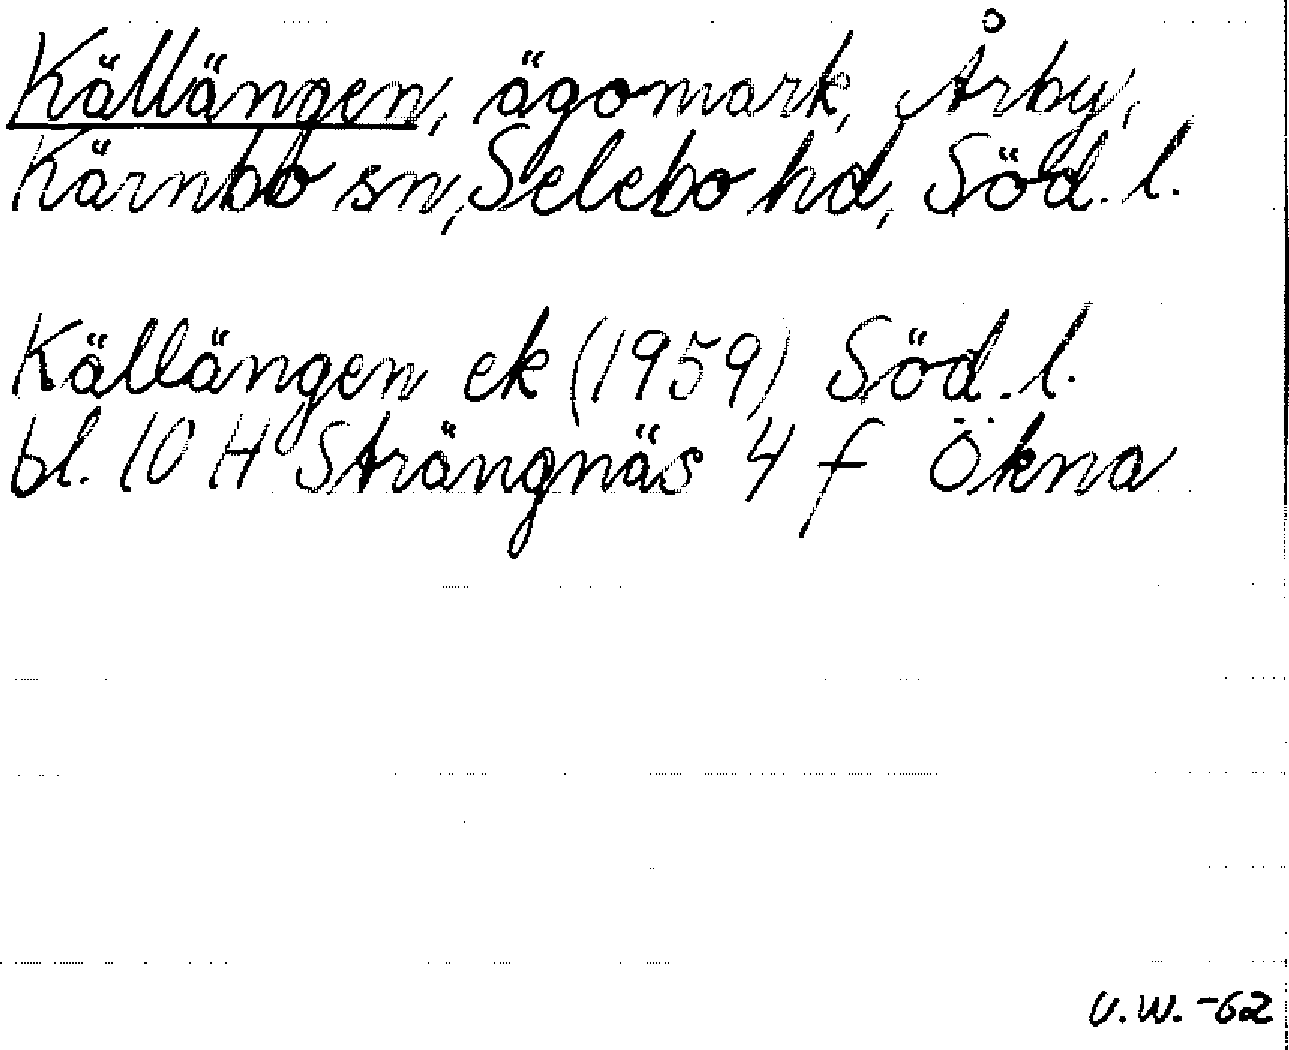 Källängen, ägomark, Årby,
Kärnbo sn, Selebo hd, Söd. l.
Källängen ek (1959) Söd. l.
bl. 10 H Strängnäs 4 f Ökna
U.W. -62